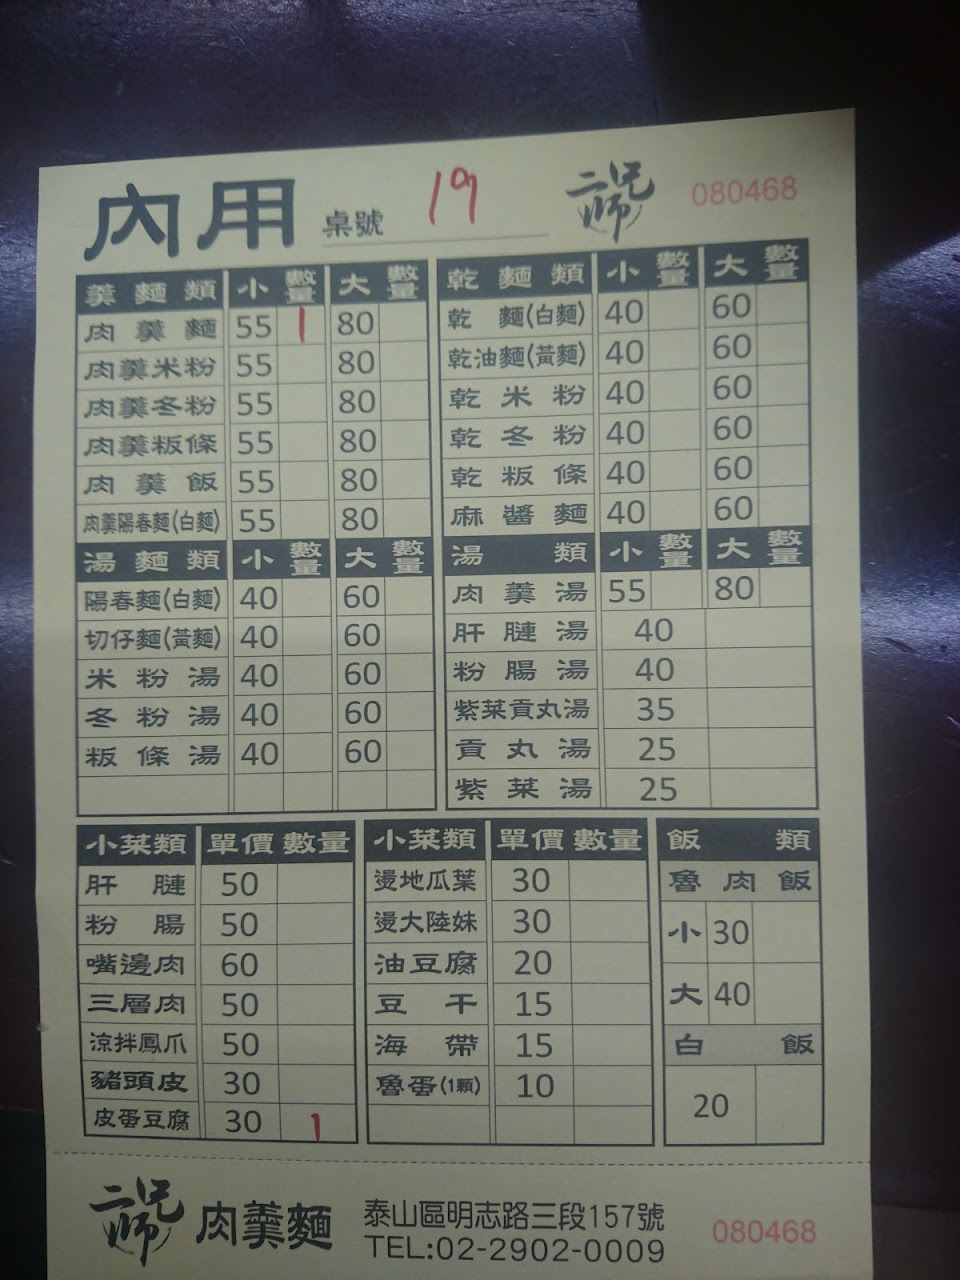 內用 桌號 19 二師兄 080468
羹麵類 小 數量 大 數量
肉羹麵 55 1 80
肉羹米粉 55 80
肉羹冬粉 55 80
肉羹粄條 55 80
肉羹飯 55 80
肉羹陽春麵(白麵) 55 80
湯麵類 小 數量 大 數量
陽春麵(白麵) 40 60
切仔麵(黃麵) 40 60
米粉湯 40 60
冬粉湯 40 60
粄條湯 40 60
乾麵類 小 數量 大 數量
乾麵(白麵) 40 60
乾油麵(黃麵) 40 60
乾米粉 40 60
乾冬粉 40 60
乾粄條 40 60
麻醬麵 40 60
湯類 小 數量 大 數量
肉羹湯 55 80
肝腱湯 40
粉腸湯 40
紫菜貢丸湯 35
貢丸湯 25
紫菜湯 25
小菜類 單價 數量
肝腱 50
粉腸 50
嘴邊肉 60
三層肉 50
涼拌鳳爪 50
豬頭皮 30
皮蛋豆腐 30 1
小菜類 單價 數量
燙地瓜葉 30
燙大陸妹 30
油豆腐 20
豆干 15
海帶 15
魯蛋(1顆) 10
飯類
魯肉飯
小 30
大 40
白飯
20
二師兄 肉羹麵 泰山區明志路三段157號
TEL:02-2902-0009 080468